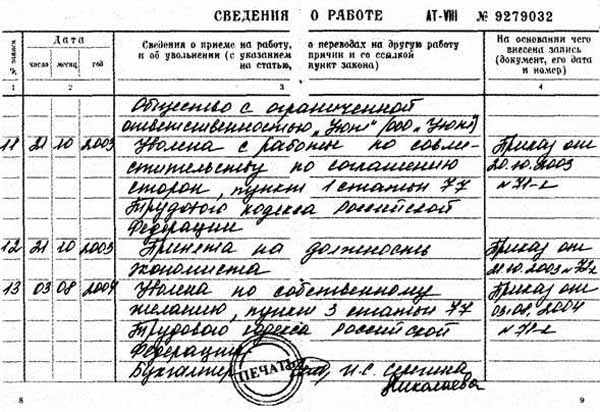 СВЕДЕНИЯ О РАБОТЕ АТ-VIII № 9279032
№ записи Дата Сведения о приеме на работу, о переводах на другую работу На основании чего
и об увольнении (с указанием причин и со ссылкой внесена запись
число месяц год на статью, пункт закона) (документ, его дата
и номер)
1 2 3 4
Общество с ограниченной
ответственностью „Уют" (ООО „Уют")
11 21 10 2003 Уволена с работы по совме- Приказ от
стительству по соглашению 20.10.2003
сторон, пункт 1 статьи 77 № 71-к
Трудового кодекса Российской
Федерации
12 21 10 2003 Принята на должность Приказ от
экономиста 21.10.2003 № 72-к
13 03 08 2004 Уволена по собственному Приказ от
желанию, пункт 3 статьи 77 03.08.2004
Трудового кодекса Российской № 71-к
Федерации
Бухгалтер И.С. Серегина
ПЕЧАТЬ Николаева
8 9